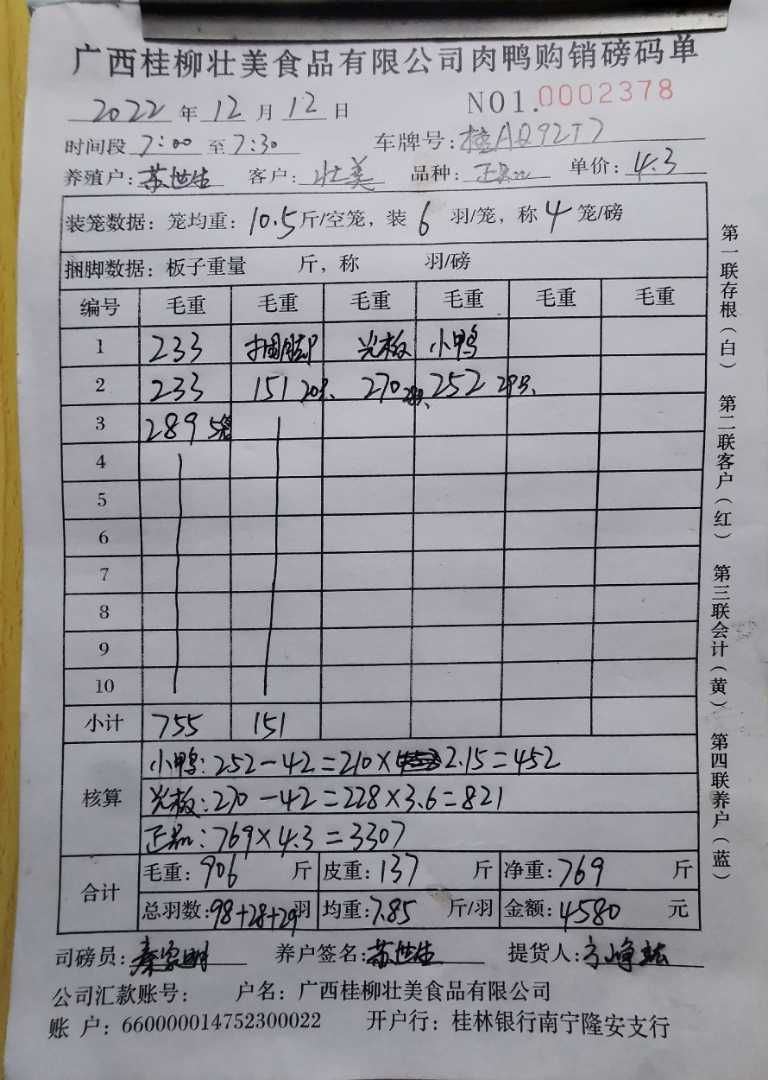 广西桂柳壮美食品有限公司肉鸭购销磅码单
2022年12月12日 NO1.0002378
时间段 7:00 至 7:30 车牌号:桂AQ92T7
养殖户:苏世生 客户:壮美 品种:正品 单价:4.3
装笼数据:笼均重:10.5斤/空笼,装6羽/笼,称4笼/磅
捆脚数据:板子重量 斤,称 羽/磅
编号 毛重 毛重 毛重 毛重 毛重 毛重
1 233 捆脚 光板 小鸭
2 233 151 20只 270 28只 252 29只
3 289 5笼
4
5
6
7
8
9
10
小计 755 151
核算
小鸭:252-42=210×2.15=452
光板:270-42=228×3.6=821
正品:769×4.3=3307
合计
毛重:906斤 皮重:137斤 净重:769斤
总羽数:98+28+29羽 均重:7.85斤/羽 金额:4580元
司磅员:秦家明 养户签名:苏世生 提货人:
公司汇款账号: 户名:广西桂柳壮美食品有限公司
账 户:660000014752300022 开户行:桂林银行南宁隆安支行
第一联存根(白) 第二联客户(红) 第三联会计(黄) 第四联养户(蓝)